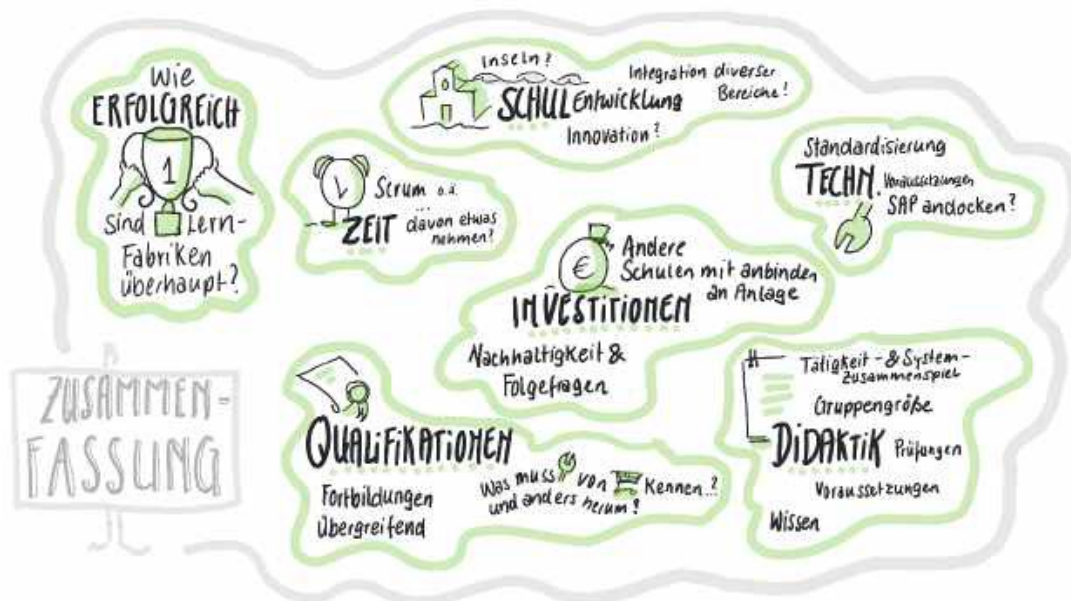 Wie
ERFOLGREICH
1
Sind Lern-
Fabriken
überhaupt?
Inseln?
Integration diverser
Bereiche!
SCHULEntwicklung
Innovation?
Scrum o.ä.
...
ZEIT davon etwas
nehmen?
Standardisierung
TECHN. Voraussetzungen
SAP andocken?
€
Andere
Schulen mit anbinden
an Anlage
INVESTITIONEN
Nachhaltigkeit &
Folgefragen
ZUSAMMEN-
FASSUNG
QUALIFIKATIONEN
Fortbildungen
Übergreifend
Was muss von Kennen..?
und anders herum?
Tätigkeit- & System-
Zusammenspiel
Gruppengröße
DiDAKTIK Prüfungen
Voraussetzungen
Wissen